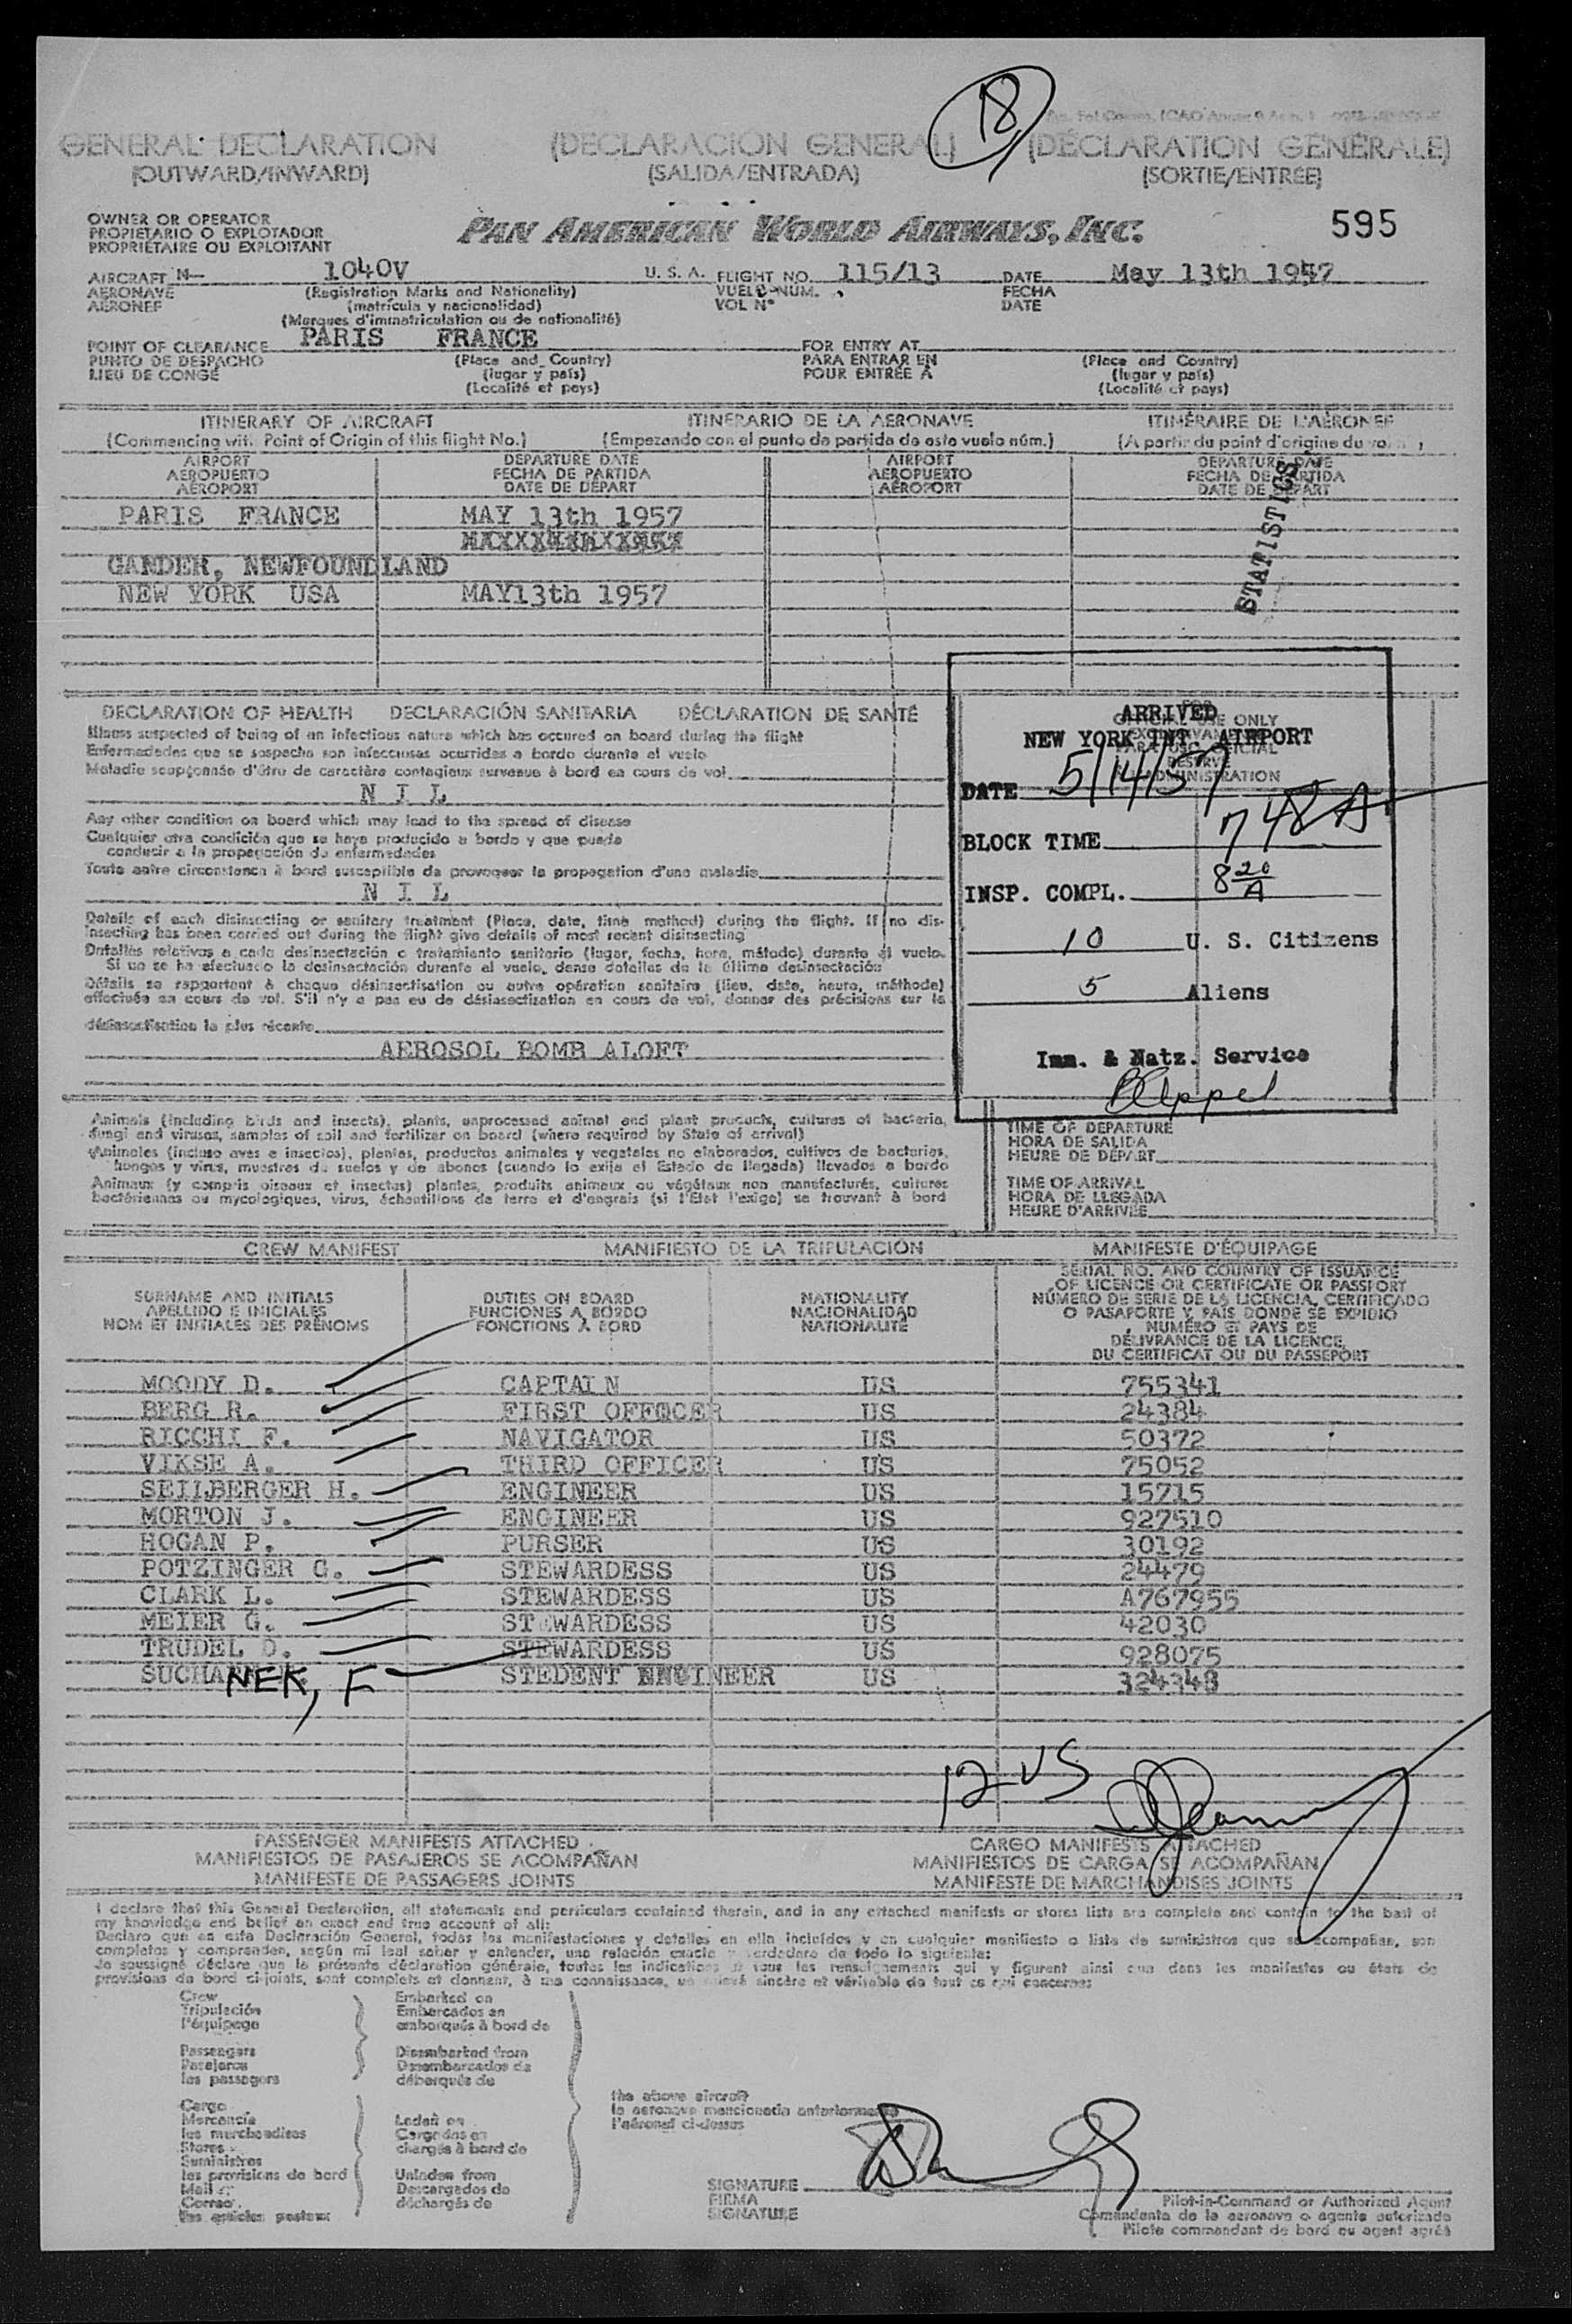 18
GENERAL DECLARATION (DECLARACIÓN GENERAL) (DÉCLARATION GÉNÉRALE)
(OUTWARD/INWARD) (SALIDA/ENTRADA) (SORTIE/ENTRÉE)
OWNER OR OPERATOR
PROPIETARIO O EXPLOTADOR
PROPRIÉTAIRE OU EXPLOITANT
PAN AMERICAN WORLD AIRWAYS, INC. 595
AIRCRAFT N— 1040V U. S. A. FLIGHT NO. 115/13 DATE May 13th 1957
AERONAVE (Registration Marks and Nationality) VUELO NUM. FECHA
AÉRONEF (matrícula y nacionalidad) VOL N° DATE
(Marques d'immatriculation ou de nationalité)
POINT OF CLEARANCE PARIS FRANCE FOR ENTRY AT
PUNTO DE DESPACHO (Place and Country) PARA ENTRAR EN (Place and Country)
LIEU DE CONGÉ (lugar y país) POUR ENTRÉE À (lugar y país)
(Localité et pays) (Localité et pays)
ITINERARY OF AIRCRAFT ITINERARIO DE LA AERONAVE ITINÉRAIRE DE L'AÉRONEF
(Commencing with Point of Origin of this flight No.) (Empezando con el punto de partida de este vuelo núm.) (A partir du point d'origine du
AIRPORT DEPARTURE DATE AIRPORT DEPARTURE DATE
AEROPUERTO FECHA DE PARTIDA AEROPUERTO FECHA DE PARTIDA
AÉROPORT DATE DE DÉPART AÉROPORT DATE DE DÉPART
STATISTICS
PARIS FRANCE MAY 13th 1957
GANDER, NEWFOUNDLAND
NEW YORK USA MAY13th 1957
DECLARATION OF HEALTH DECLARACIÓN SANITARIA DÉCLARATION DE SANTÉ
Illness suspected of being of an infectious nature which has occured on board during the flight
Enfermedades que se sospecha son infecciosas ocurridas a bordo durante el vuelo
Maladie soupçonnée d'être de caractère contagieux survenue à bord en cours de vol
N I L
Any other condition on board which may lead to the spread of disease
Cualquier otra condición que se haya producido a bordo y que pueda
conducir a la propagación de enfermedades
Toute autre circonstance à bord susceptible de provoquer la propagation d'une maladie
N I L
Details of each disinsecting or sanitary treatment (Place, date, time method) during the flight. If no dis-
insecting has been carried out during the flight give details of most recent disinsecting
Detalles relativos a cada desinsectación o tratamiento sanitario (lugar, fecha, hora, método) durante el vuelo.
Si no se ha efectuado la desinsectación durante el vuelo, dense detalles de la última desinsectación
Détails se rapportant à chaque désinsectisation ou autre opération sanitaire (lieu, date, heure, méthode)
effectuée en cours de vol. S'il n'y a pas eu de désinsectisation en cours de vol, donner des précisions sur la
désinsectisation la plus récente
AEROSOL BOMB ALOFT
FOR
OFFICIAL USE ONLY
ARRIVED
NEW YORK INT. AIRPORT
DATE 5/14/57
BLOCK TIME 748 A
INSP. COMPL. 8 20 A
10 U. S. Citizens
5 Aliens
Imm. & Natz. Service
Animals (including birds and insects), plants, unprocessed animal and plant products, cultures of bacteria,
fungi and viruses, samples of soil and fertilizer on board (where required by State of arrival)
Animales (incluso aves e insectos), plantas, productos animales y vegetales no elaborados, cultivos de bacterias,
hongos y virus, muestras de suelos y de abonos (cuando lo exija el Estado de llegada) llevados a bordo
Animaux (y compris oiseaux et insectes) plantes, produits animaux ou végétaux non manufacturés, cultures
bactériennes ou mycologiques, virus, échantillons de terre et d'engrais (si l'État l'exige) se trouvant à bord
TIME OF DEPARTURE
HORA DE SALIDA
HEURE DE DÉPART
TIME OF ARRIVAL
HORA DE LLEGADA
HEURE D'ARRIVÉE
CREW MANIFEST MANIFIESTO DE LA TRIPULACIÓN MANIFESTE D'ÉQUIPAGE
SURNAME AND INITIALS
APELLIDO E INICIALES
NOM ET INITIALES DES PRÉNOMS
DUTIES ON BOARD
FUNCIONES A BORDO
FONCTIONS À BORD
NATIONALITY
NACIONALIDAD
NATIONALITÉ
SERIAL NO. AND COUNTRY OF ISSUANCE
OF LICENCE OR CERTIFICATE OR PASSPORT
NÚMERO DE SERIE DE LA LICENCIA, CERTIFICADO
O PASAPORTE Y PAÍS DONDE SE EXPIDIÓ
NUMÉRO ET PAYS DE
DÉLIVRANCE DE LA LICENCE,
DU CERTIFICAT OU DU PASSEPORT
MOODY D. CAPTAIN US 755341
BERG R. FIRST OFFICER US 24384
RICCHI F. NAVIGATOR US 50372
VIKSE A. THIRD OFFICER US 75052
SEILBERGER H. ENGINEER US 15715
MORTON J. ENGINEER US 927510
HOGAN P. PURSER US 30192
POTZINGER G. STEWARDESS US 24479
CLARK L. STEWARDESS US A767955
MEIER G. STEWARDESS US 42030
TRUDEL D. STEWARDESS US 928075
SUCHANEK, F STEDENT ENGINEER US 324348
12 US
PASSENGER MANIFESTS ATTACHED CARGO MANIFESTS ATTACHED
MANIFIESTOS DE PASAJEROS SE ACOMPAÑAN MANIFIESTOS DE CARGA SE ACOMPAÑAN
MANIFESTE DE PASSAGERS JOINTS MANIFESTE DE MARCHANDISES JOINTS
I declare that this General Declaration, all statements and particulars contained therein, and in any attached manifests or stores lists are complete and contain to the best of
my knowledge and belief an exact and true account of all:
Declaro que en esta Declaración General, todas las manifestaciones y detalles en ella incluídos y en cualquier manifiesto o lista de suministros que se acompañan, son
completos y comprenden, según mi leal saber y entender, una relación exacta y verdadera de todo lo siguiente:
Je soussigné déclare que la présente déclaration générale, toutes les indications et tous les renseignements qui y figurent ainsi que dans les manifestes ou états de
provisions de bord ci-joints, sont complets et donnent, à ma connaissance, un relevé sincère et véritable de tout ce qui concerne:
Crew Embarked on
Tripulación Embarcados en
l'équipage embarqués à bord de
Passengers Disembarked from
Pasajeros Desembarcados de
les passagers débarqués de
the above aircraft
la aeronave mencionada anteriormente
l'aéronef ci-dessus
Cargo
Mercancía Laden on
les marchandises Cargadas en
Stores chargés à bord de
Suministros
les provisions de bord Unladen from
Mail Descargados de
Correo déchargés de
les articles postaux
SIGNATURE
FIRMA
SIGNATURE
Pilot-in-Command or Authorized Agent
Comandante de la aeronave o agente autorizado
Pilote commandant de bord ou agent agréé